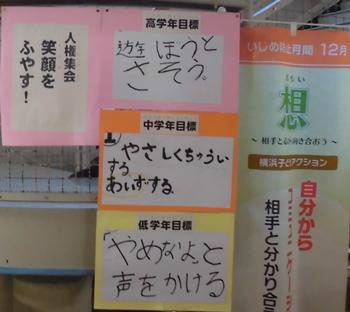 人権集会
笑顔を
ふやす!
高学年目標
遊ぼうと
さそう。
中学年目標
やさしくちゅうい
する
あいずする
低学年目標
「やめなよ」と
声をかける
いじめ防止月間 12月
想
〜相手と心向き合おう〜
横浜子どもアクション
自分から
相手と分かり合う